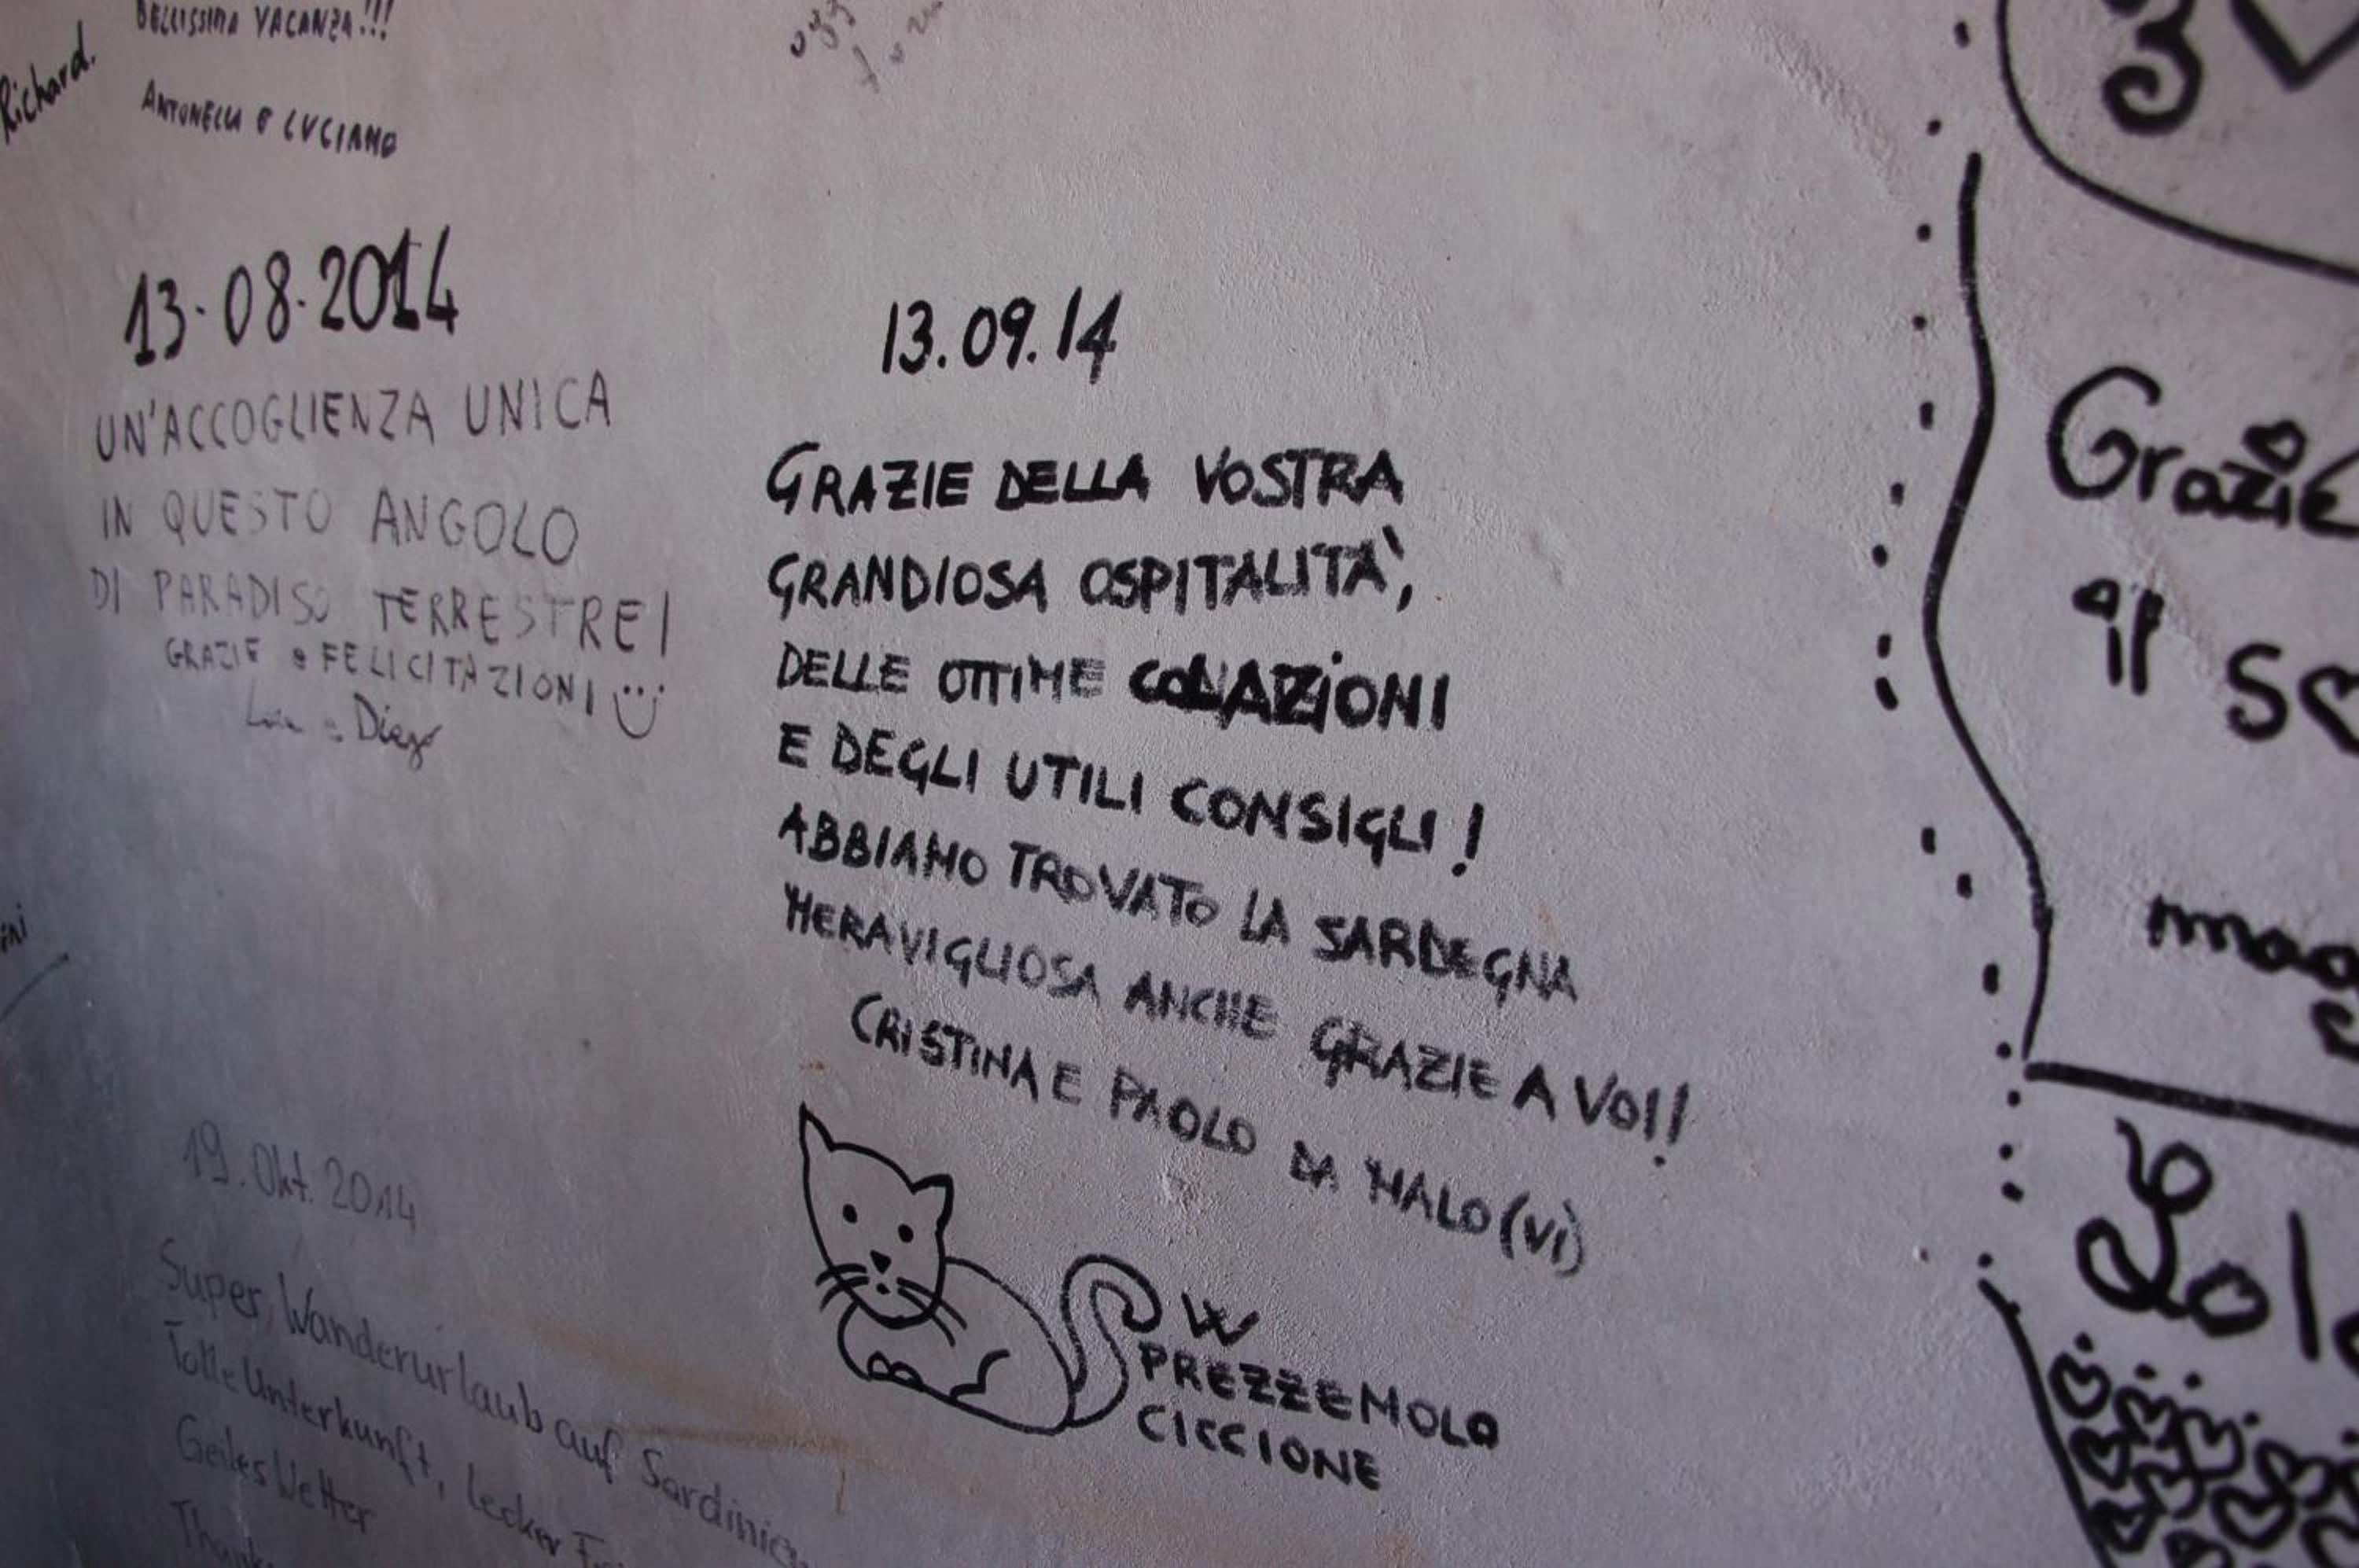 BELLISSIMA VACANZA!!!
Richard.
ANTONELLA E LUCIANO
13.08.2014
UN'ACCOGLIENZA UNICA
IN QUESTO ANGOLO
DI PARADISO TERRESTRE!
GRAZIE e FELICITAZIONI
e Diego
13.09.14
GRAZIE DELLA VOSTRA
GRANDIOSA OSPITALITA',
DELLE OTTIME COLAZIONI
E DEGLI UTILI CONSIGLI!
ABBIAMO TROVATO LA SARDEGNA
MERAVIGLIOSA ANCHE GRAZIE A VOI!
CRISTINA E PAOLO DA MALO (VI)
W
PREZZEMOLO
CICCIONE
19. Okt. 2014
Super Wanderurlaub auf Sardinien
Tolle Unterkunft, lecker
Geiles Wetter
3
Grazie